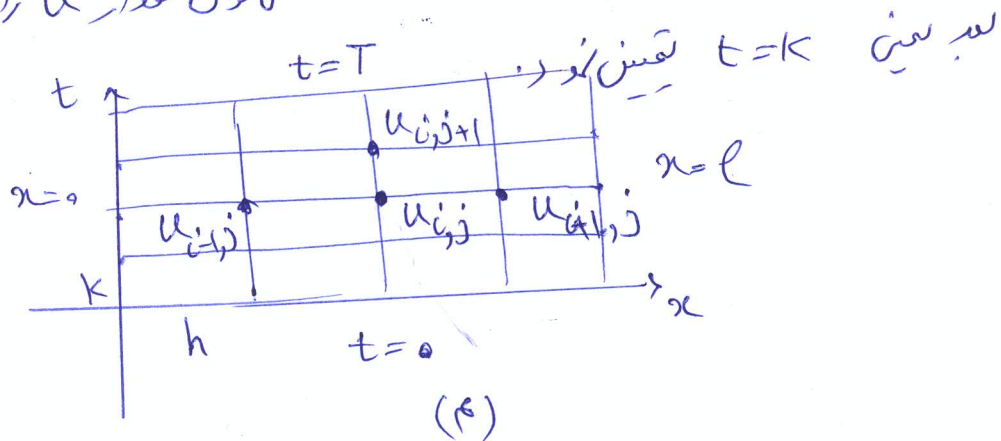 بعد یعنی t=k تعیین نمود.
t=T
t
u_{i,j+1}
x=0
x=l
u_{i-1,j} u_{i,j} u_{i+1,j}
k
x
h t=0
(۴)